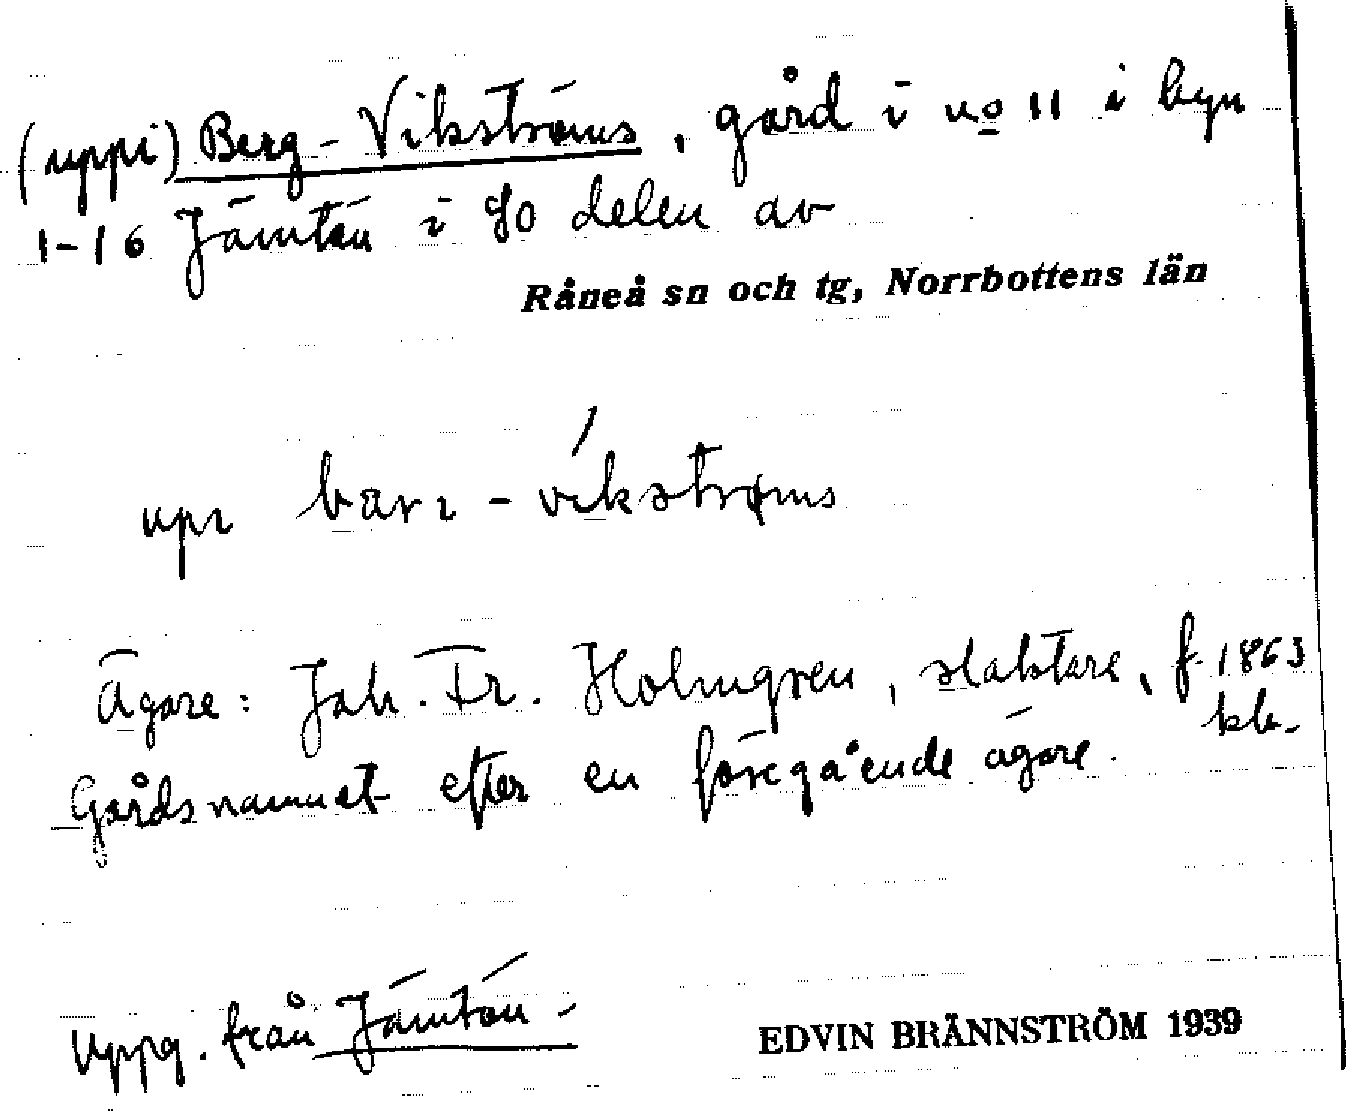 (uppi) Berg-Vikströms, gård i no 11 i byn
1-16 Jämtön i SO delen av
Råneå sn och tg, Norrbottens län
Ägare: Joh. Fr. Holmgren, slaktare, f. 1863
kb.
Gårdsnamnet efter en föregående ägare.
Uppg. från Jämtön-
EDVIN BRÄNNSTRÖM 1939